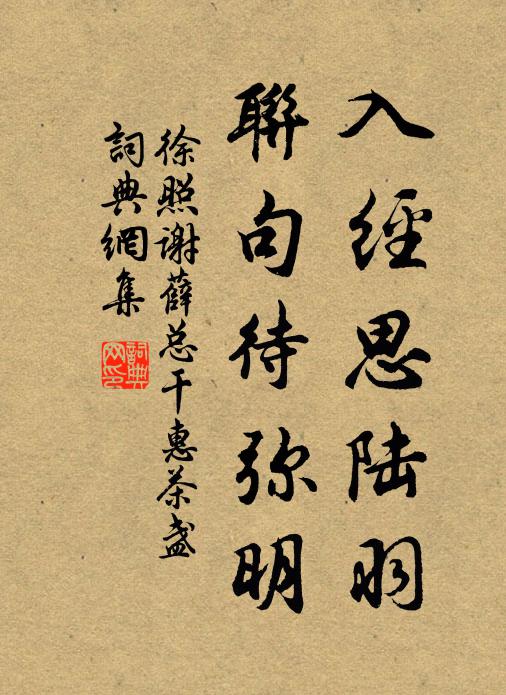 入經思陆羽
聯句待弥明
徐照谢薛总干惠茶盏
詞典網集
詞典
网印